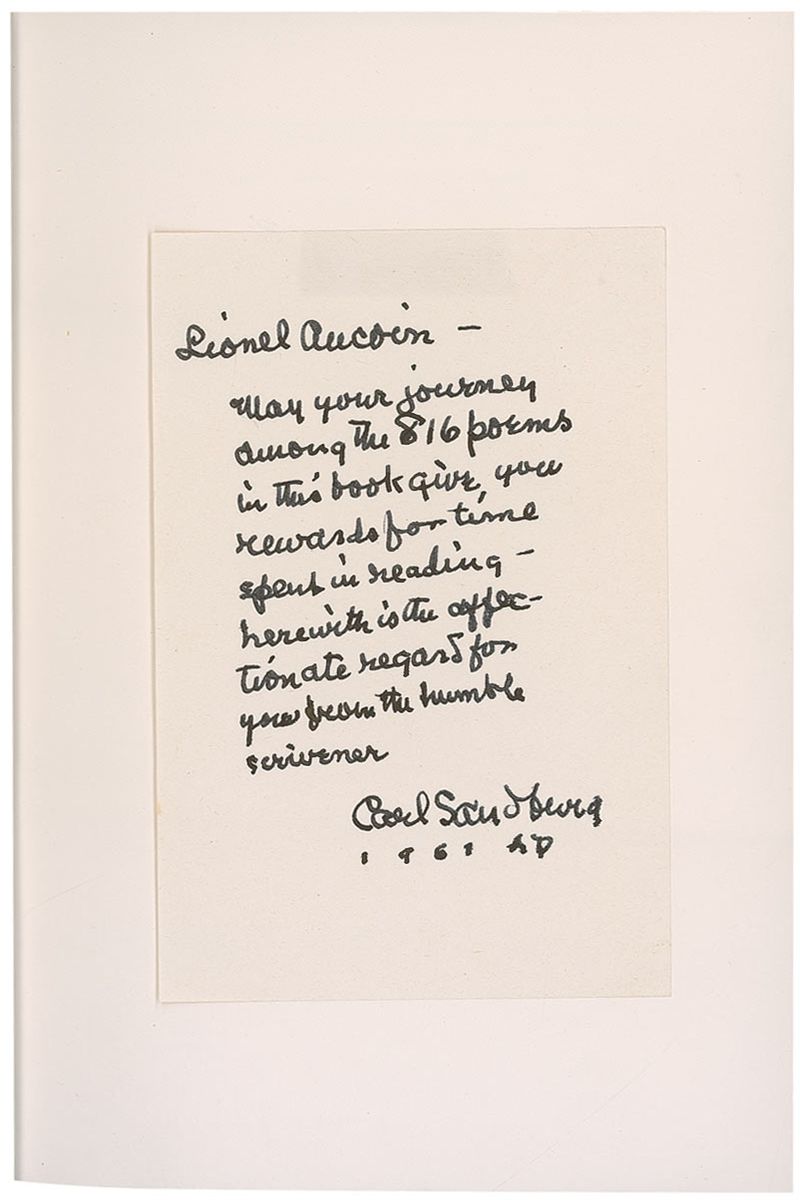 Lionel Aucoin —
May your journey
among the 816 poems
in this book give you
rewards for time
spent in reading —
herewith is the affec-
tionate regard for
you from the humble
scrivener
Carl Sandburg
1961 AD